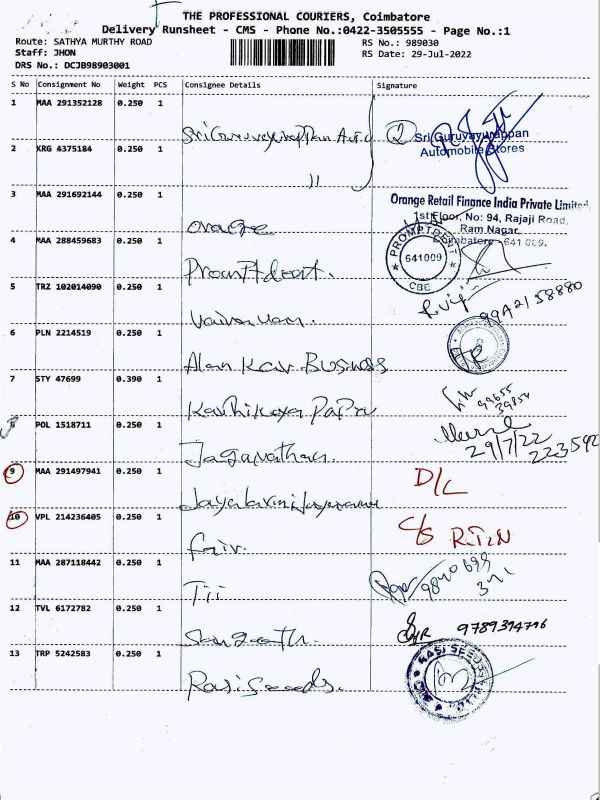 THE PROFESSIONAL COURIERS, Coimbatore
Delivery Runsheet - CMS - Phone No.:0422-3505555 - Page No.:1
Route: SATHYA MURTHY ROAD
RS No.: 989030
Staff: JHON
RS Date: 29-Jul-2022
DRS No.: DCJB98903001
S No Consignment No Weight PCS Consignee Details Signature
1 MAA 291352128 0.250 1
Sri Guruvayurappan Auto
Sri Guruvayurappan
Automobile Stores
2 KRG 4375184 0.250 1
11
3 MAA 291692144 0.250 1
Orange
Orange Retail Finance India Private Limited
1st Floor, No: 94, Rajaji Road,
Ram Nagar,
Coimbatore - 641 009.
4 MAA 288459683 0.250 1
Promptdent.
PROMPTDENT
641009
CBE
5 TRZ 102014090 0.250 1
6 PLN 2214519 0.250 1
Alan Kar Business
7 STY 47699 0.390 1
Karthikeya Papa
99655
39854
8 POL 1518711 0.250 1
Jaganathan.
29/7/22
223592
9 MAA 291497941 0.250 1
D/L
10 VPL 214236405 0.250 1
C/S RT2N
11 MAA 287118442 0.250 1
Tii
9840 699
12 TVL 6172782 0.250 1
Sangeeth.
13 TRP 5242583 0.250 1
Rasi Seeds.
RASI SEEDS